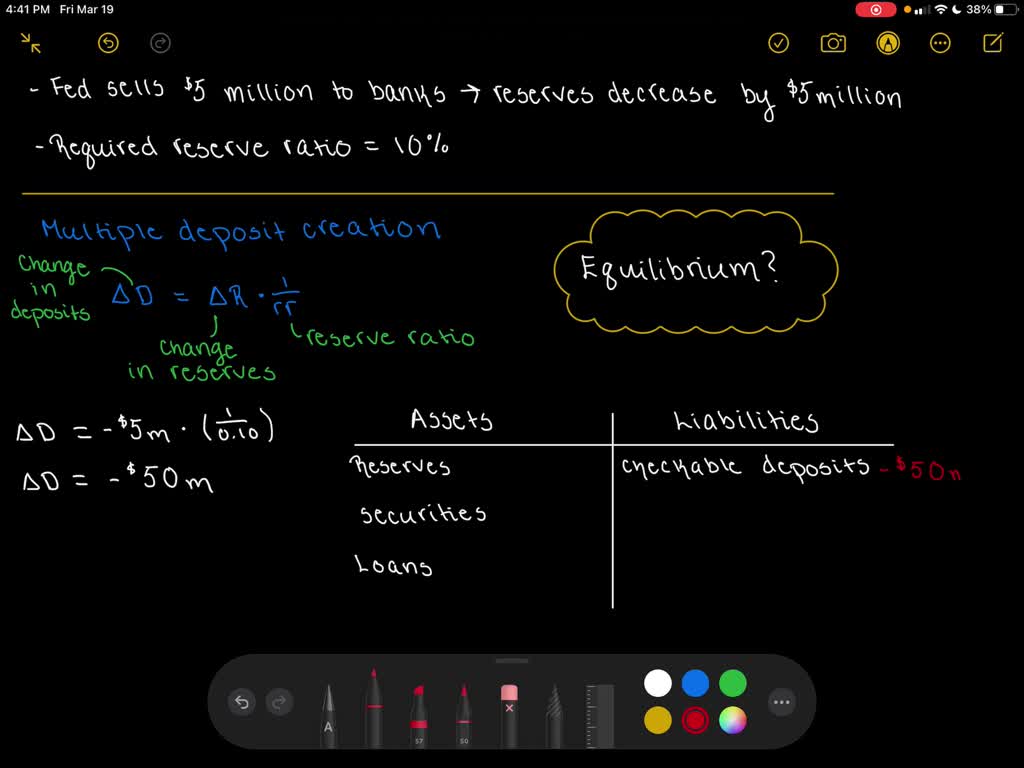 4:41 PM Fri Mar 19
38%
- Fed sells $5 million to banks → reserves decrease by $5 million
- Required reserve ratio = 10%
Multiple deposit creation
Change
in
deposits
ΔD = ΔR · 1/rr
change
in reserves
reserve ratio
Equilibrium?
ΔD = -$5m · (1/0.10)
ΔD = -$50m
Assets
Liabilities
Reserves
checkable deposits -$50m
securities
Loans
A
57
50